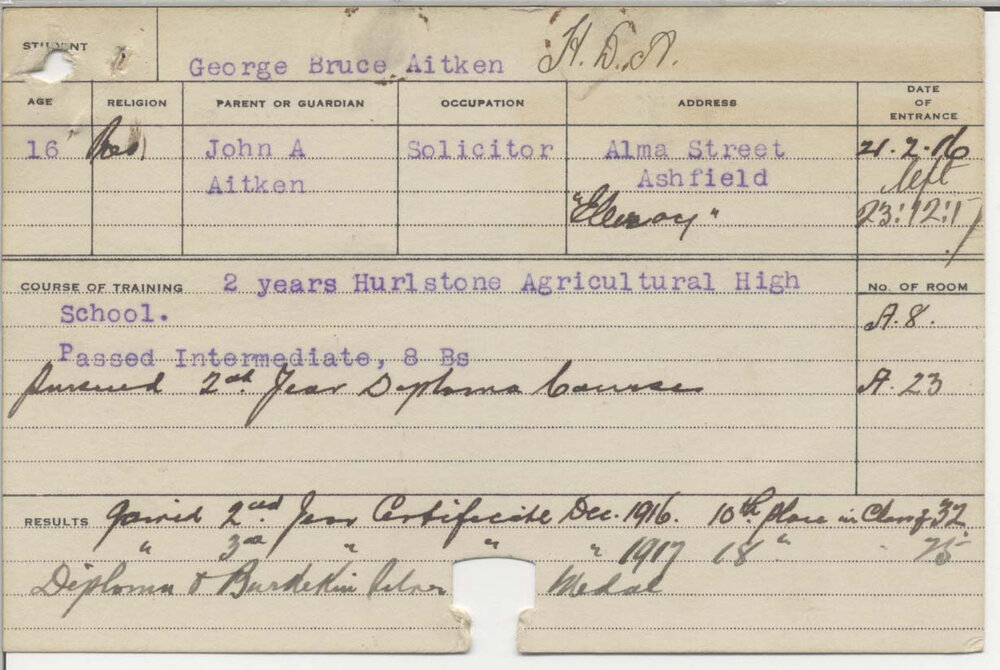 STUDENT George Bruce Aitken H.D.A.
AGE RELIGION PARENT OR GUARDIAN OCCUPATION ADDRESS DATE OF ENTRANCE
16 John A Solicitor Alma Street 21.2.16
Aitken Ashfield left
23:12:17
COURSE OF TRAINING 2 years Hurlstone Agricultural High No. OF ROOM
School. A.8.
Passed Intermediate, 8 Bs
pursued 2nd Year Diploma Course A.23
RESULTS gained 2nd Year Certificate Dec. 1916. 10th place in Class of 32
" 3rd " " " 1917 18 " 25
Diploma & Burdekin Silver Medal